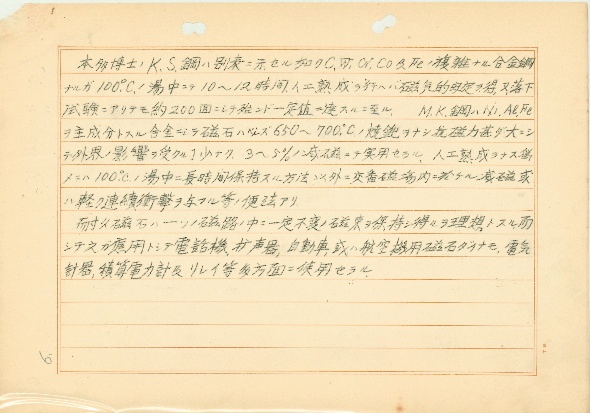 本多博士ノ K.S.鋼ハ別表ニ示セル如ク C, W, Cr, Co 及 Fe ノ複雑ナル合金鋼
ナルガ 100°C ノ湯中ニテ 10〜12時間人工熟成ヲ行ヘバ磁気的安定ヲ得又落下
試験ニアリテモ約200回ニシテ殆ンド一定値ニ達スルニ至ル. M.K.鋼ハ Ni, Al, Fe
ヲ主成分トスル合金ニシテ磁石ハ 650〜700°C ノ焼鈍ヲナシ抗磁力甚ダ大ニシ
テ外界ノ影響ヲ受クル1少ナク 3〜5%ノ減磁ニテ実用セラル. 人工熟成ヲナス為
メニハ 100°C ノ湯中ニ長時間保持スル方法以外ニ交番磁場内ニ於ケル減磁或
ハ軽ク連続衝撃ヲ与フル等ノ便法アリ
耐久磁石ハ一ツノ磁路ノ中ニ一定不変ノ磁束ヲ保持シ得ルヲ理想トスル而
シテ応用トシテ電話機, 拡声器, 自動車, 或ハ航空機用磁石ダイナモ, 電気
計器, 積算電力計及リレイ等多方面ニ使用セラル.
6.